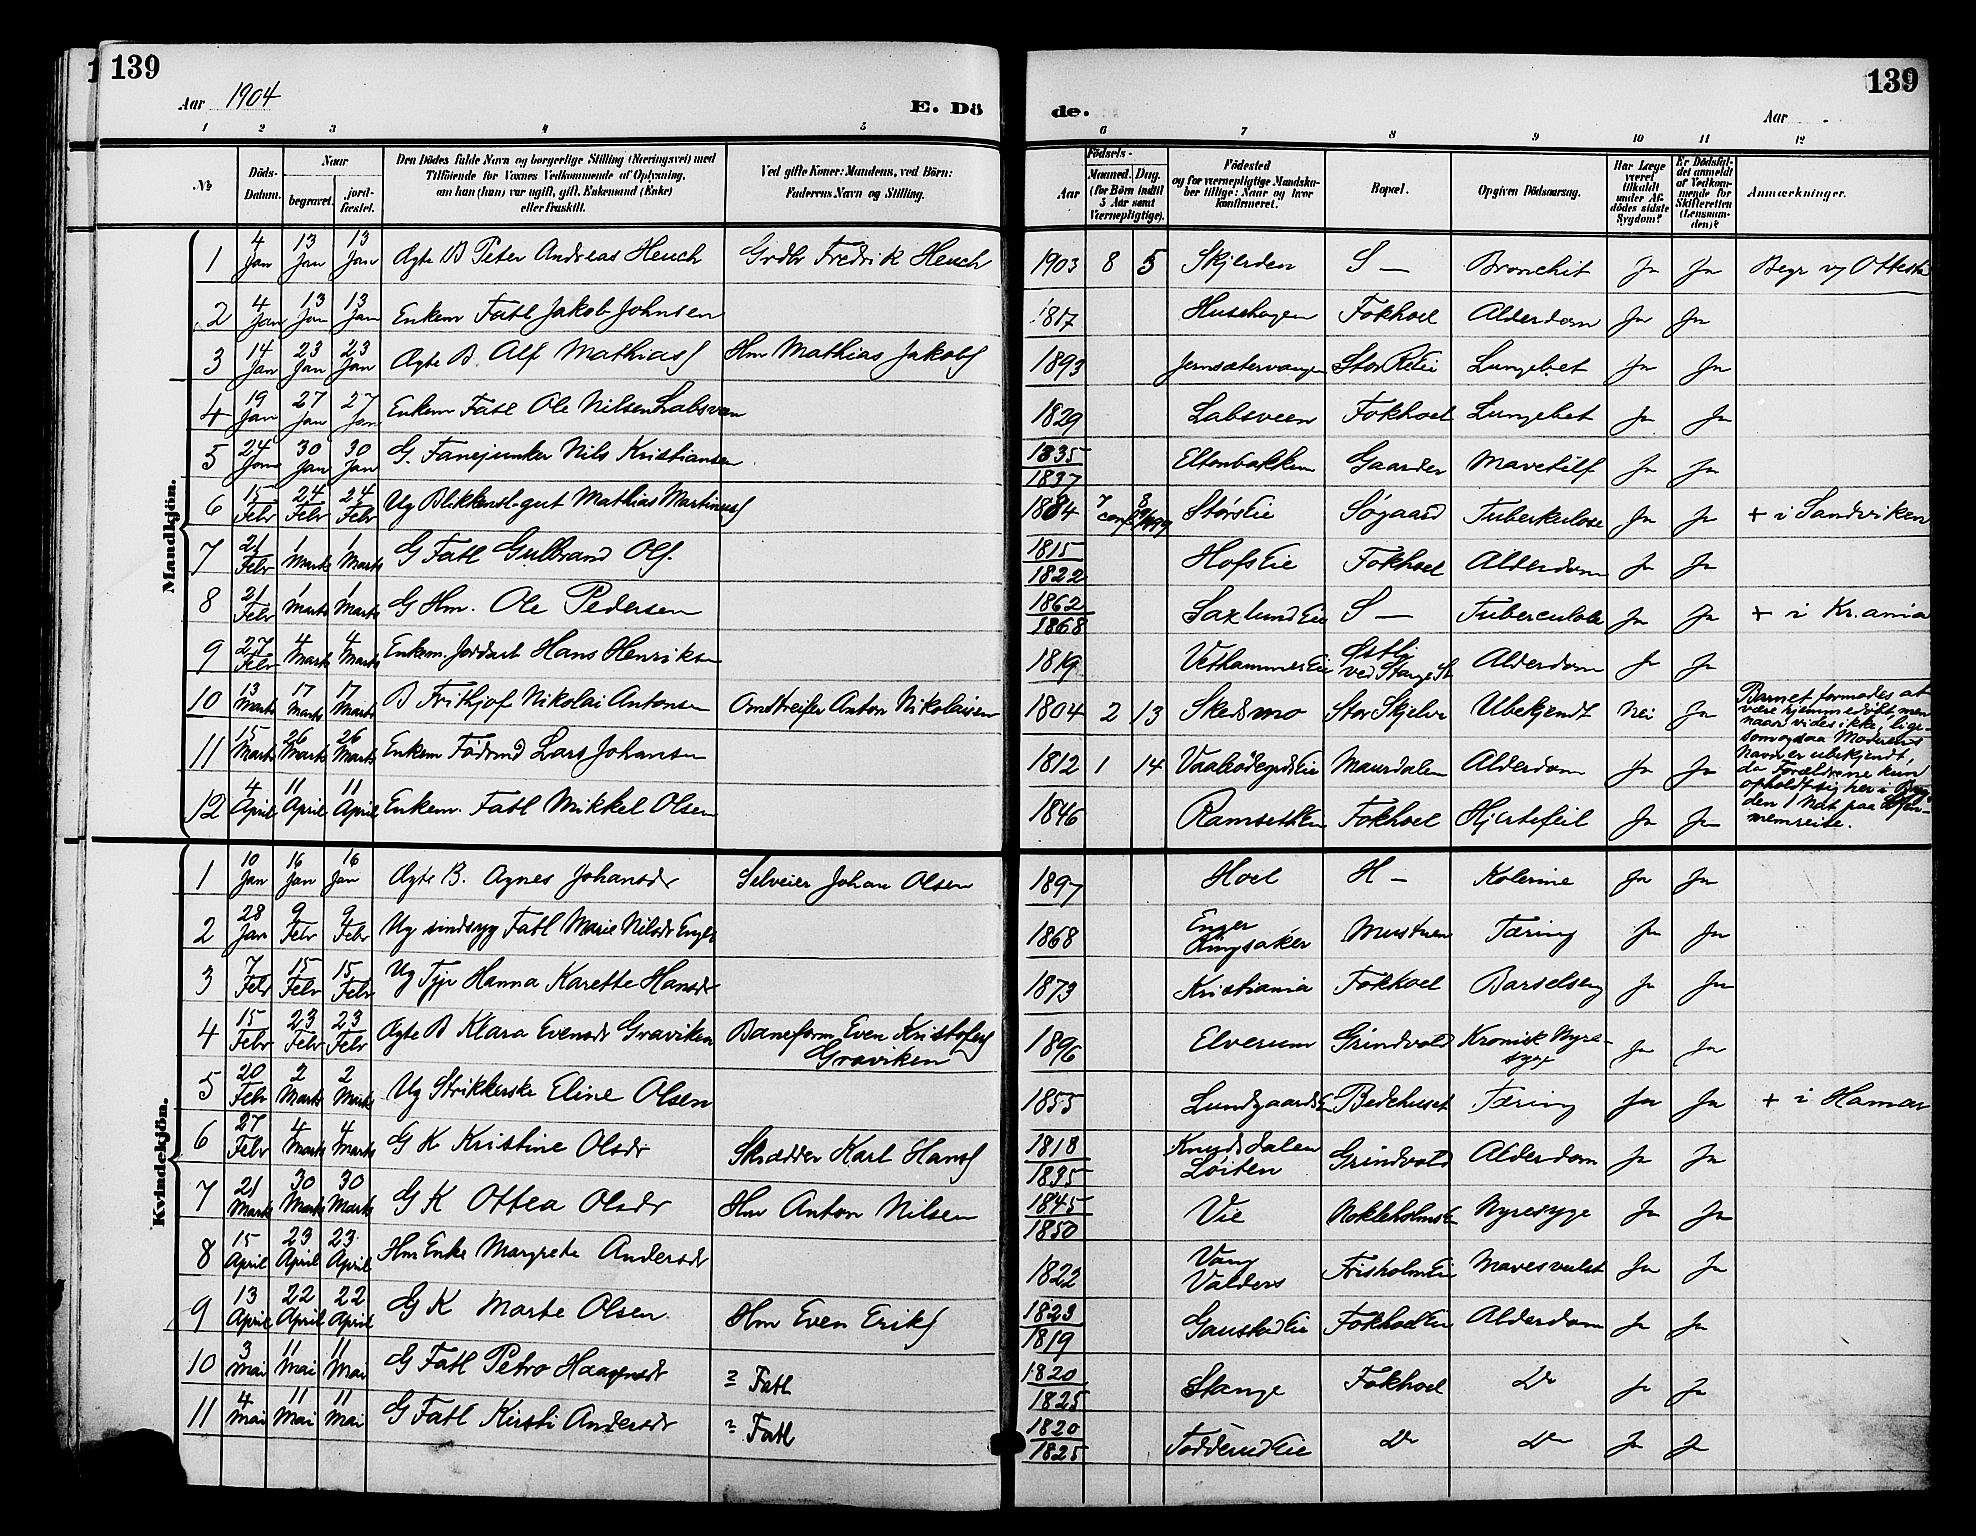 139
Aar 1904
E. Dö
1 2 3 4 5
№
Döds-Datum.
Naar
begravet.
jord-fæstet.
Den Dödes fulde Navn og borgerlige Stilling (Næringsvei) med
Tilföiende for Voxnes Vedkommende af Oplysning,
om han (hun) var ugift, gift, Enkemand (Enke)
eller fraskilt.
Ved gifte Koner: Mandens, ved Börn:
Faderens Navn og Stilling.
de.
139
Aar
6 7 8 9 10 11 12
Födsels-
Aar
Maaned. Dag.
(for Börn indtil
5 Aar samt
Værnepligtige).
Födested
og for værnepligtige Mandska-
ber tillige: Naar og hvor
konfirmeret.
Bopæl.
Opgiven Dödsaarsag.
Har Læge
været
tilkaldt
under Af-
dödes sidste
Sygdom?
Er Dödsfal-
det anmeldt
af Vedkom-
mende for
Skifteretten
(Lensman-
den)?
Anmærkninger.
Mandkjön.
1 4 Jan 13 Jan 13 Jan Ægte B Peter Andreas Heuch Grdbr Fredrik Heuch 1903 8 5 Skjerden S — Bronchit Ja Ja Begr v/ Ottesta
2 4 Jan 13 Jan 13 Jan Enkem Fatl Jakob Johnsen 1817 Husehagen Fokhoel Alderdom Ja Ja
3 14 Jan 23 Jan 23 Jan Ægte B Alf Mathiass Hm Mathias Jakobs 1893 Jernsætervangen Stor Re Eie Lungebet Ja Ja
4 19 Jan 27 Jan 27 Jan Enkem Fatl Ole Nilsen Labsveen 1829 Labsveen Fokhoel Lungebet Ja Ja
5 24 Jan 30 Jan 30 Jan G. Fanejunker Nils Kristiansen 1835 1837 Eltonbakken Gaarder Mavetilf Ja Ja
6 15 Febr 24 Febr 24 Febr Ug Blikkensl.gut Mathias Martinuss 1884 7 3 conf 1899 StorsEie Søgaard Tuberkulose Ja Ja + i Sandviken
7 21 Febr 1 Marts 1 Marts G Fatl Gulbrand Ols. 1815 1822 HofsEie Fokhoel Alderdom Ja Ja
8 21 Febr 1 Marts 1 Marts G Hm. Ole Pedersen 1862 1868 SaxlundEie S — Tuberculose Ja Ja + i Kr.ania
9 27 Febr 4 Marts 4 Marts Enkem. Jordarb Hans Henriksen 1819 VethammerEie Østli ved Stange St Alderdom Ja Ja
10 13 Marts 17 Marts 17 Marts B Frithjof Nikolai Antonsen Omstreifer Anton Nikolaisen 1804 2 13 Skedsmo Stor Skjelve Ubekjendt Nei Ja Barnet formodes at
være hjemmedöbt, men
naar vides ikke, lige-
som ogsaa Moderens
Navn er ubekjendt,
da Forældrene kun
opholdt sig her i Byg-
den 1 Nat paa
nemreise.
11 15 Marts 26 Marts 26 Marts Enkem Föderaad Lars Johansen 1812 1 14 Maurdalen Alderdom Ja Ja
12 4 April 11 April 11 April Enkem. Fatl Mikkel Olsen 1846 Fokhoel Hjertefeil Ja Ja
Kvindekjön.
1 10 Jan 16 Jan 16 Jan Ægte B. Agnes Johansdr Selveier Johan Olsen 1897 Hoel H — Kolerine Ja Ja
2 28 Jan 9 Febr 9 Febr Ug sindsyg Fatl Marie Nilsdr Enger 1868 Enger Ringsaker Mustuen Tæring Ja Ja
3 7 Febr 15 Febr 15 Febr Ug Tje Hanna Karette Hansdr 1873 Kristiania Fokhoel Barselseng Ja Ja
4 15 Febr 23 Febr 23 Febr Ægte B Klara Evensdr Graviken Baneform Even Kristofers
Graviken 1896 Elverum Grindvold Kronisk Nyre-
syge Ja Ja
5 20 Febr 2 Marts 2 Marts Ug Strikkerske Eline Olsen 1855 LundgaardsE Bedehuset Tæring Ja Ja + i Hamar
6 27 Febr 4 Marts 4 Marts G K Kristine Olsdr Skrædder Karl Hans 1818 1835 Knudsdalen Løiten Grindvold Alderdom Ja Ja
7 21 Marts 30 Marts 30 Marts G K Ottea Olsdr Hm Anton Nilsen 1845 1850 Vie NokleholmsE Nyresyge Ja Ja
8 15 April 23 April 23 April Hm Enke Margrete Andersdr 1822 Vang Valders FrisholmEie Mavesvulst Ja Ja
9 13 April 22 April 22 April G K Marte Olsen Hm Even Eriks 1823 1819 GaustadEie FokhoelEie Alderdom Ja Ja
10 3 Mai 11 Mai 11 Mai G Fatl Petro Haagensdr ? Fatl 1820 1825 Stange Fokhoel Do Ja Ja
11 4 Mai 11 Mai 11 Mai G Fatl Kirsti Andersdr ? Fatl 1820 1825 TødderudEie Do Do Ja Ja